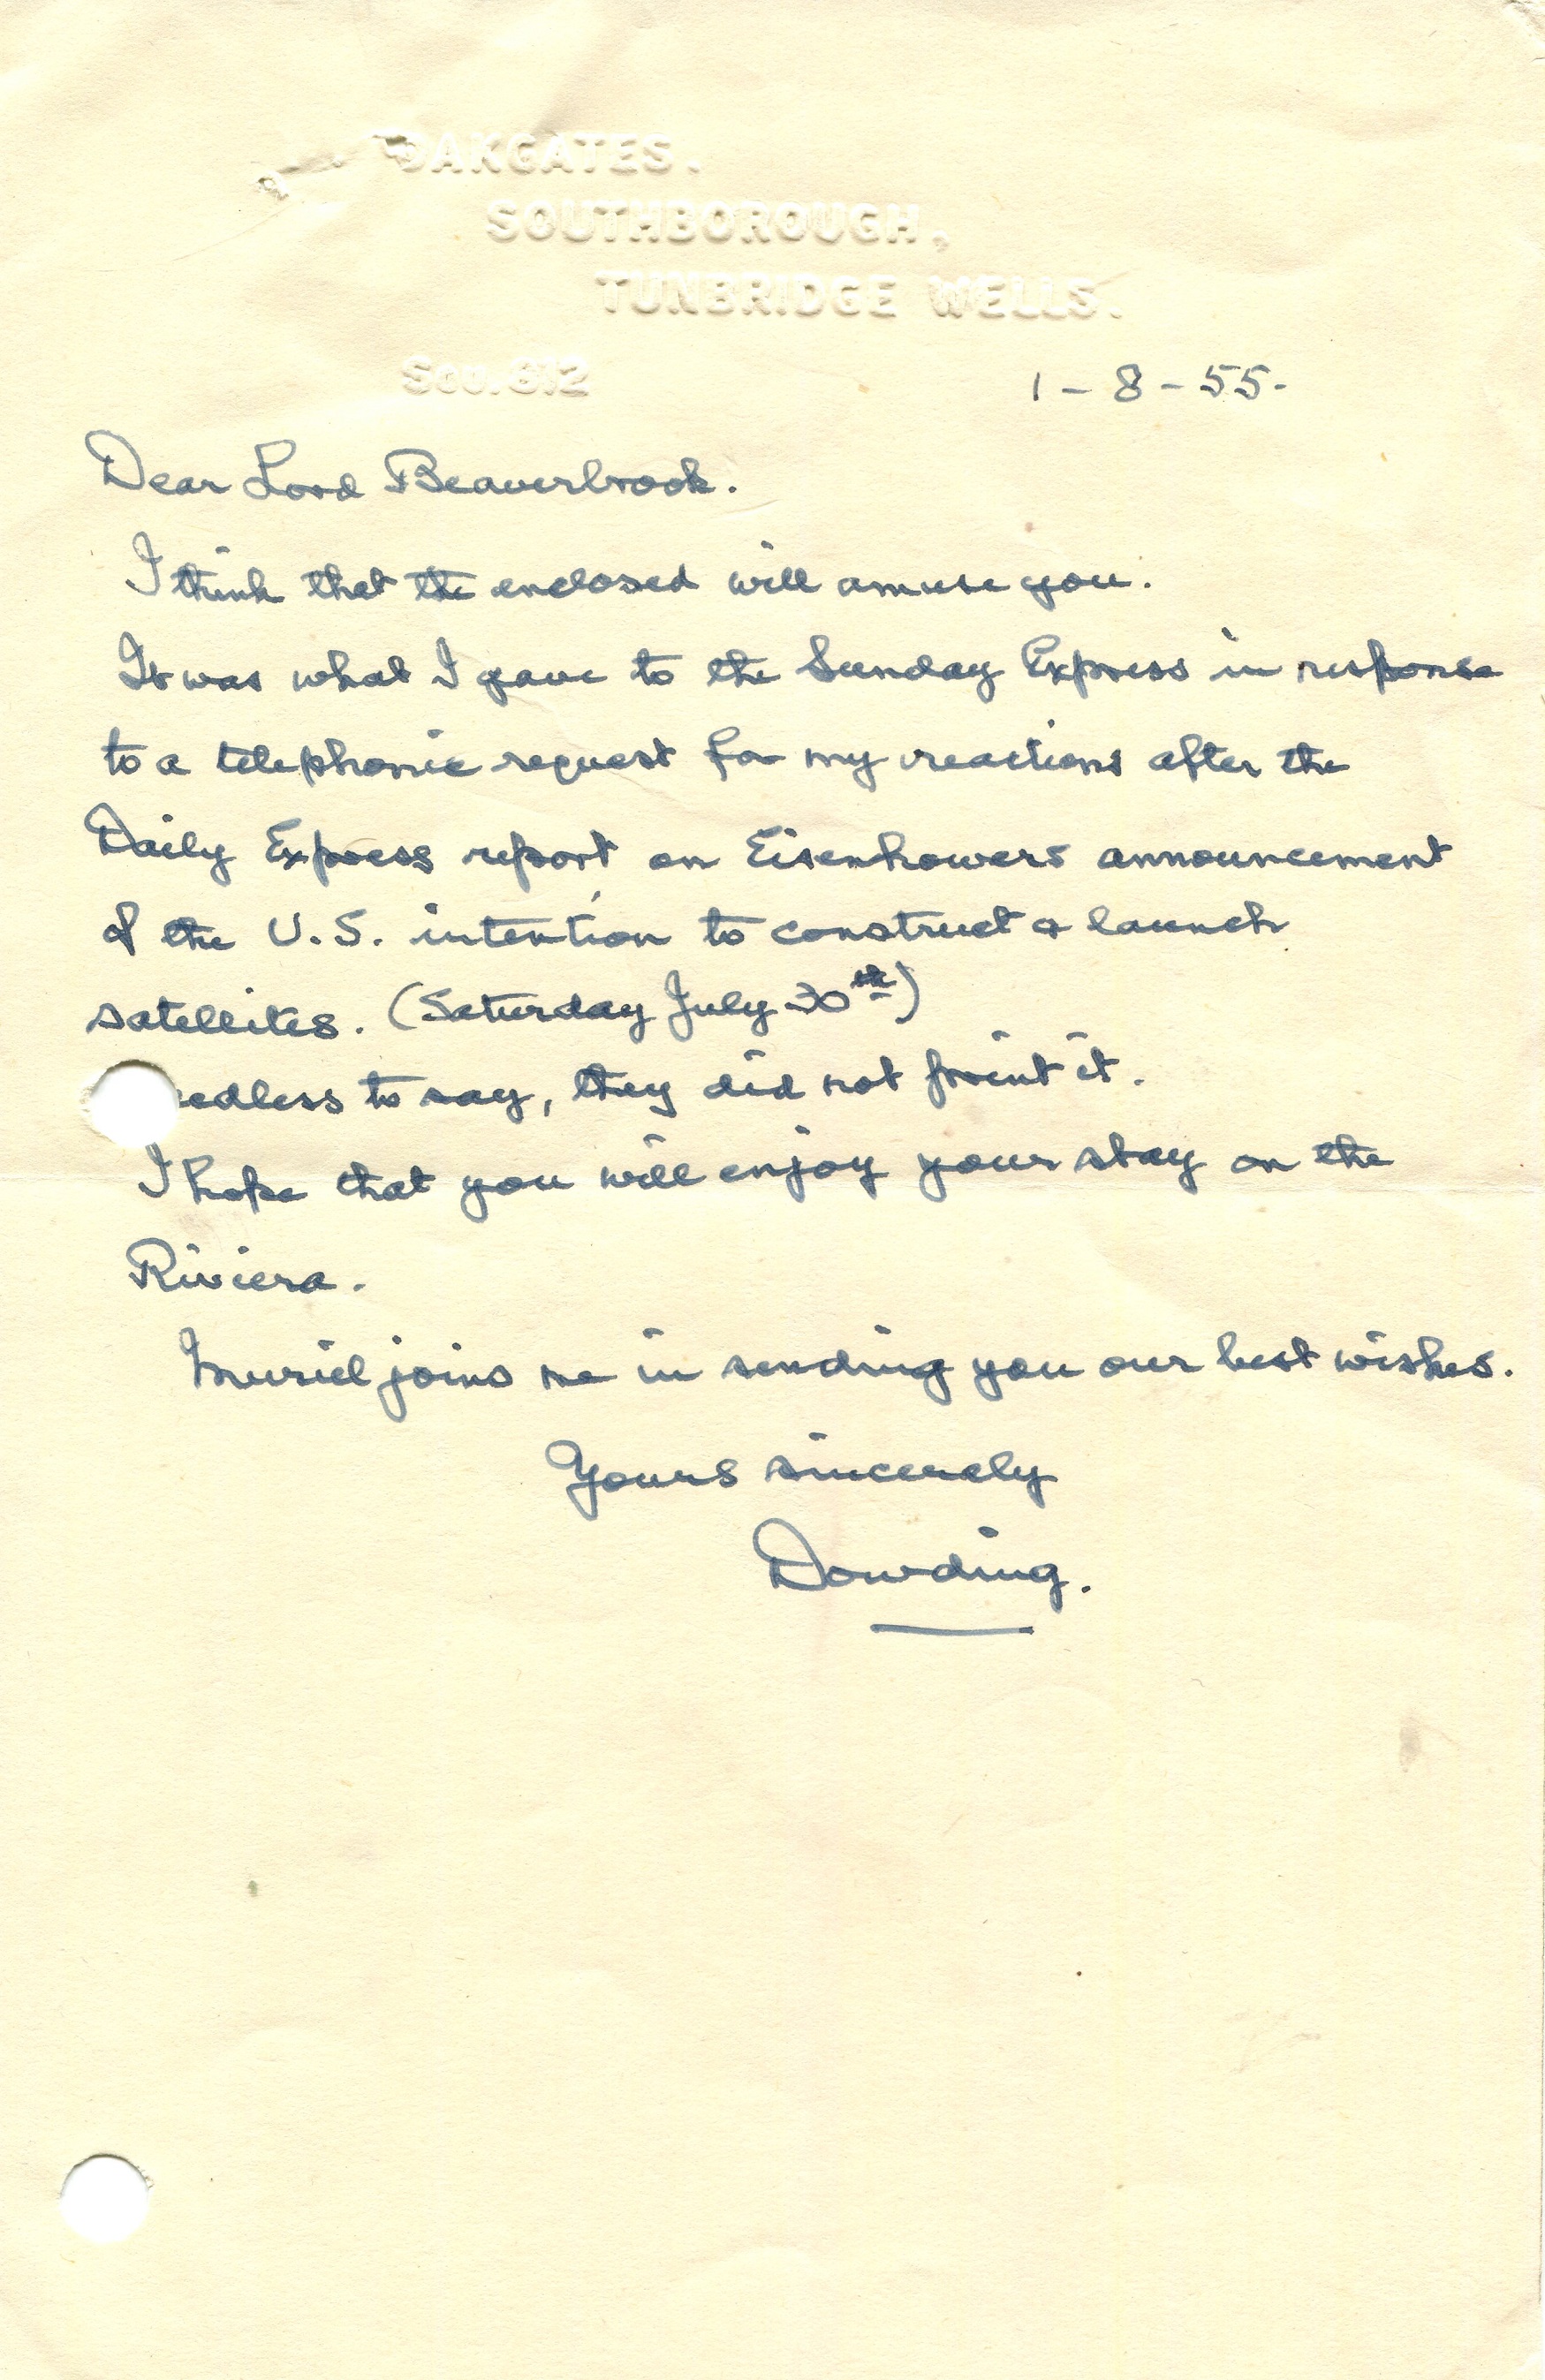 OAKGATES.
SOUTHBOROUGH,
TUNBRIDGE WELLS.
Sou. 612
1-8-55.
Dear Lord Beaverbrook.
I think that the enclosed will amuse you.
It was what I gave to the Sunday Express in response
to a telephonic request for my reactions after the
Daily Express report on Eisenhowers announcement
of the U.S. intention to construct & launch
satellites. (Saturday July 30th)
eedless to say, they did not print it.
I hope that you will enjoy your stay on the
Riviera.
Muriel joins me in sending you our best wishes.
Yours sincerely
Dowding.